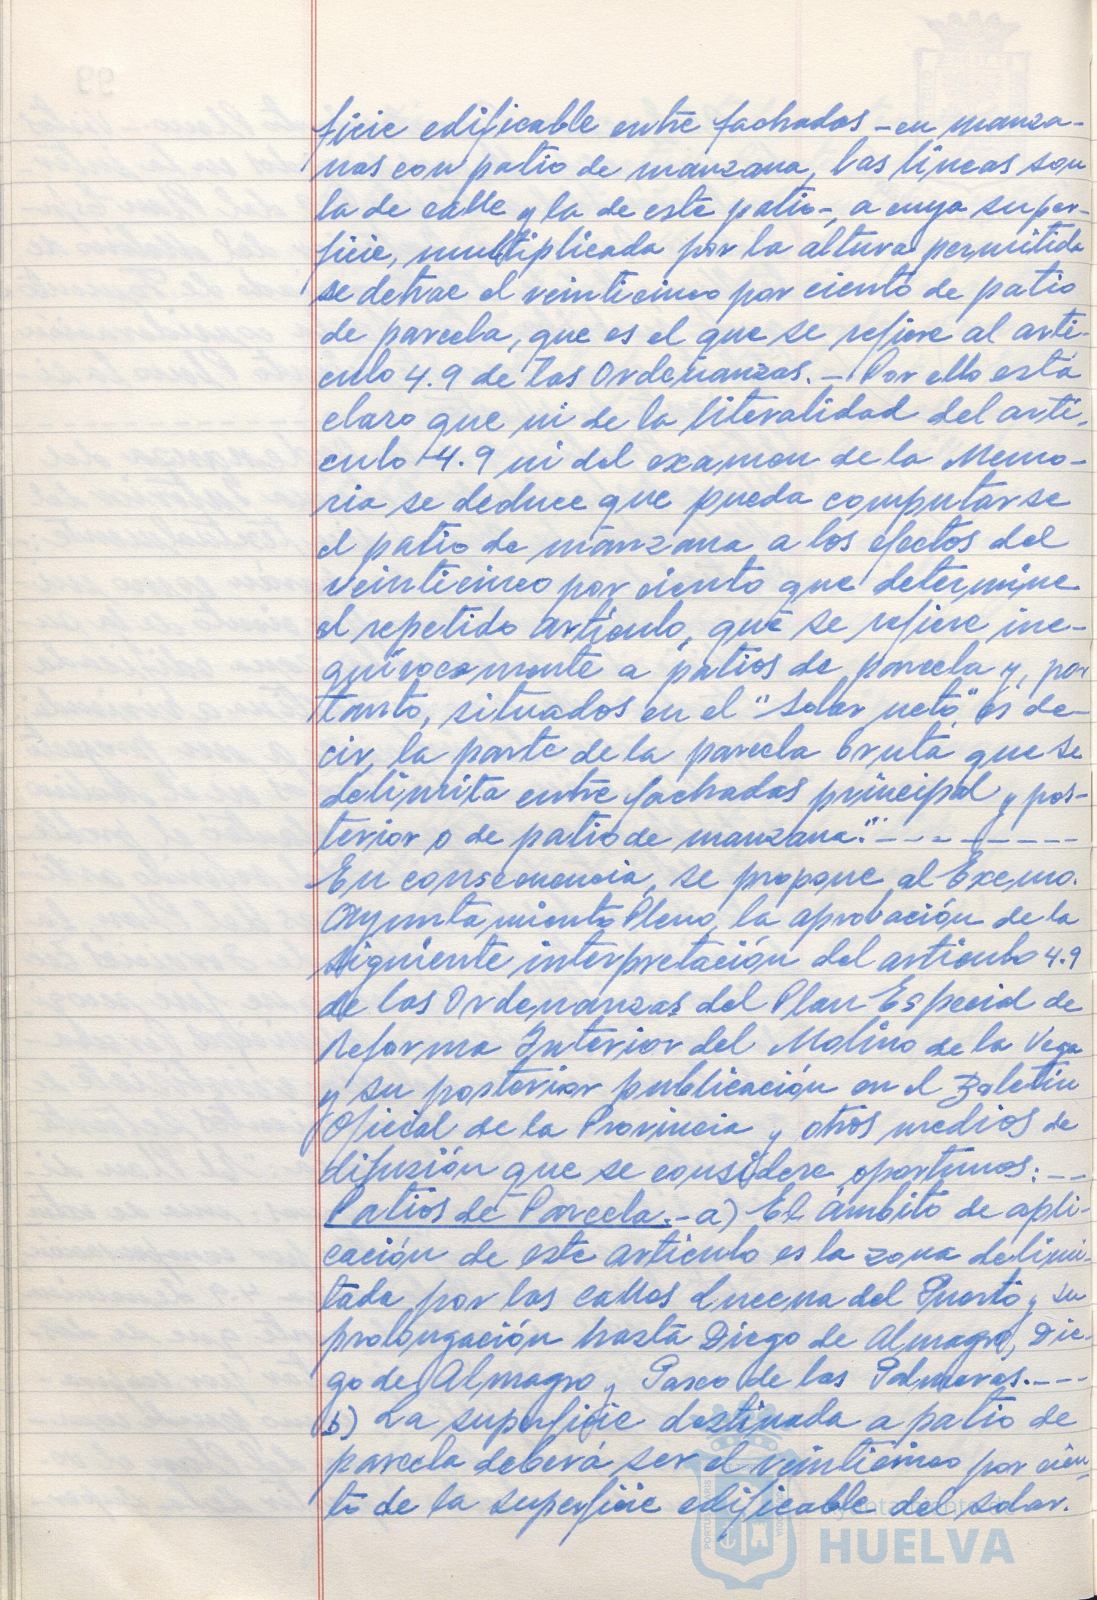 ficie edificable entre fachadas -en manza-
nas con patio de manzana, las líneas son
la de calle y la de este patio-, a cuya super-
ficie, multiplicada por la altura permitida
se detrae el veinticinco por ciento de patio
de parcela, que es el que se refiere al artí-
culo 4.9 de las Ordenanzas.- Por ello está
claro que ni de la literalidad del artí-
culo 4.9 ni del examen de la Memo-
ria se deduce que pueda computarse
el patio de manzana a los efectos del
veinticinco por ciento que determine
el repetido artículo, que se refiere ine-
quivocamente a patios de parcela y, por
tanto, situados en el "solar neto", es de-
cir, la parte de la parcela bruta que se
delimita entre fachadas principal y pos-
terior o de patio de manzana."---------
En consecuencia, se propone al Excmo.
Ayuntamiento Pleno, la aprobación de la
siguiente interpretación del artículo 4.9
de las Ordenanzas del Plan Especial de
Reforma Interior del Molino de la Vega
y su posterior publicación en el Boletín
Oficial de la Provincia y otros medios de
difusión que se considere oportunos:--
Patios de Parcela.-a) El ámbito de apli-
cación de este artículo es la zona delimi-
tada por las calles Lucena del Puerto y su
prolongación hasta Diego de Almagro, Die-
go de Almagro y Paseo de las Palmeras.---
b) La superficie destinada a patio de
parcela deberá ser el veinticinco por cien-
to de la superficie edificable del solar.
Ayuntamiento de
HUELVA